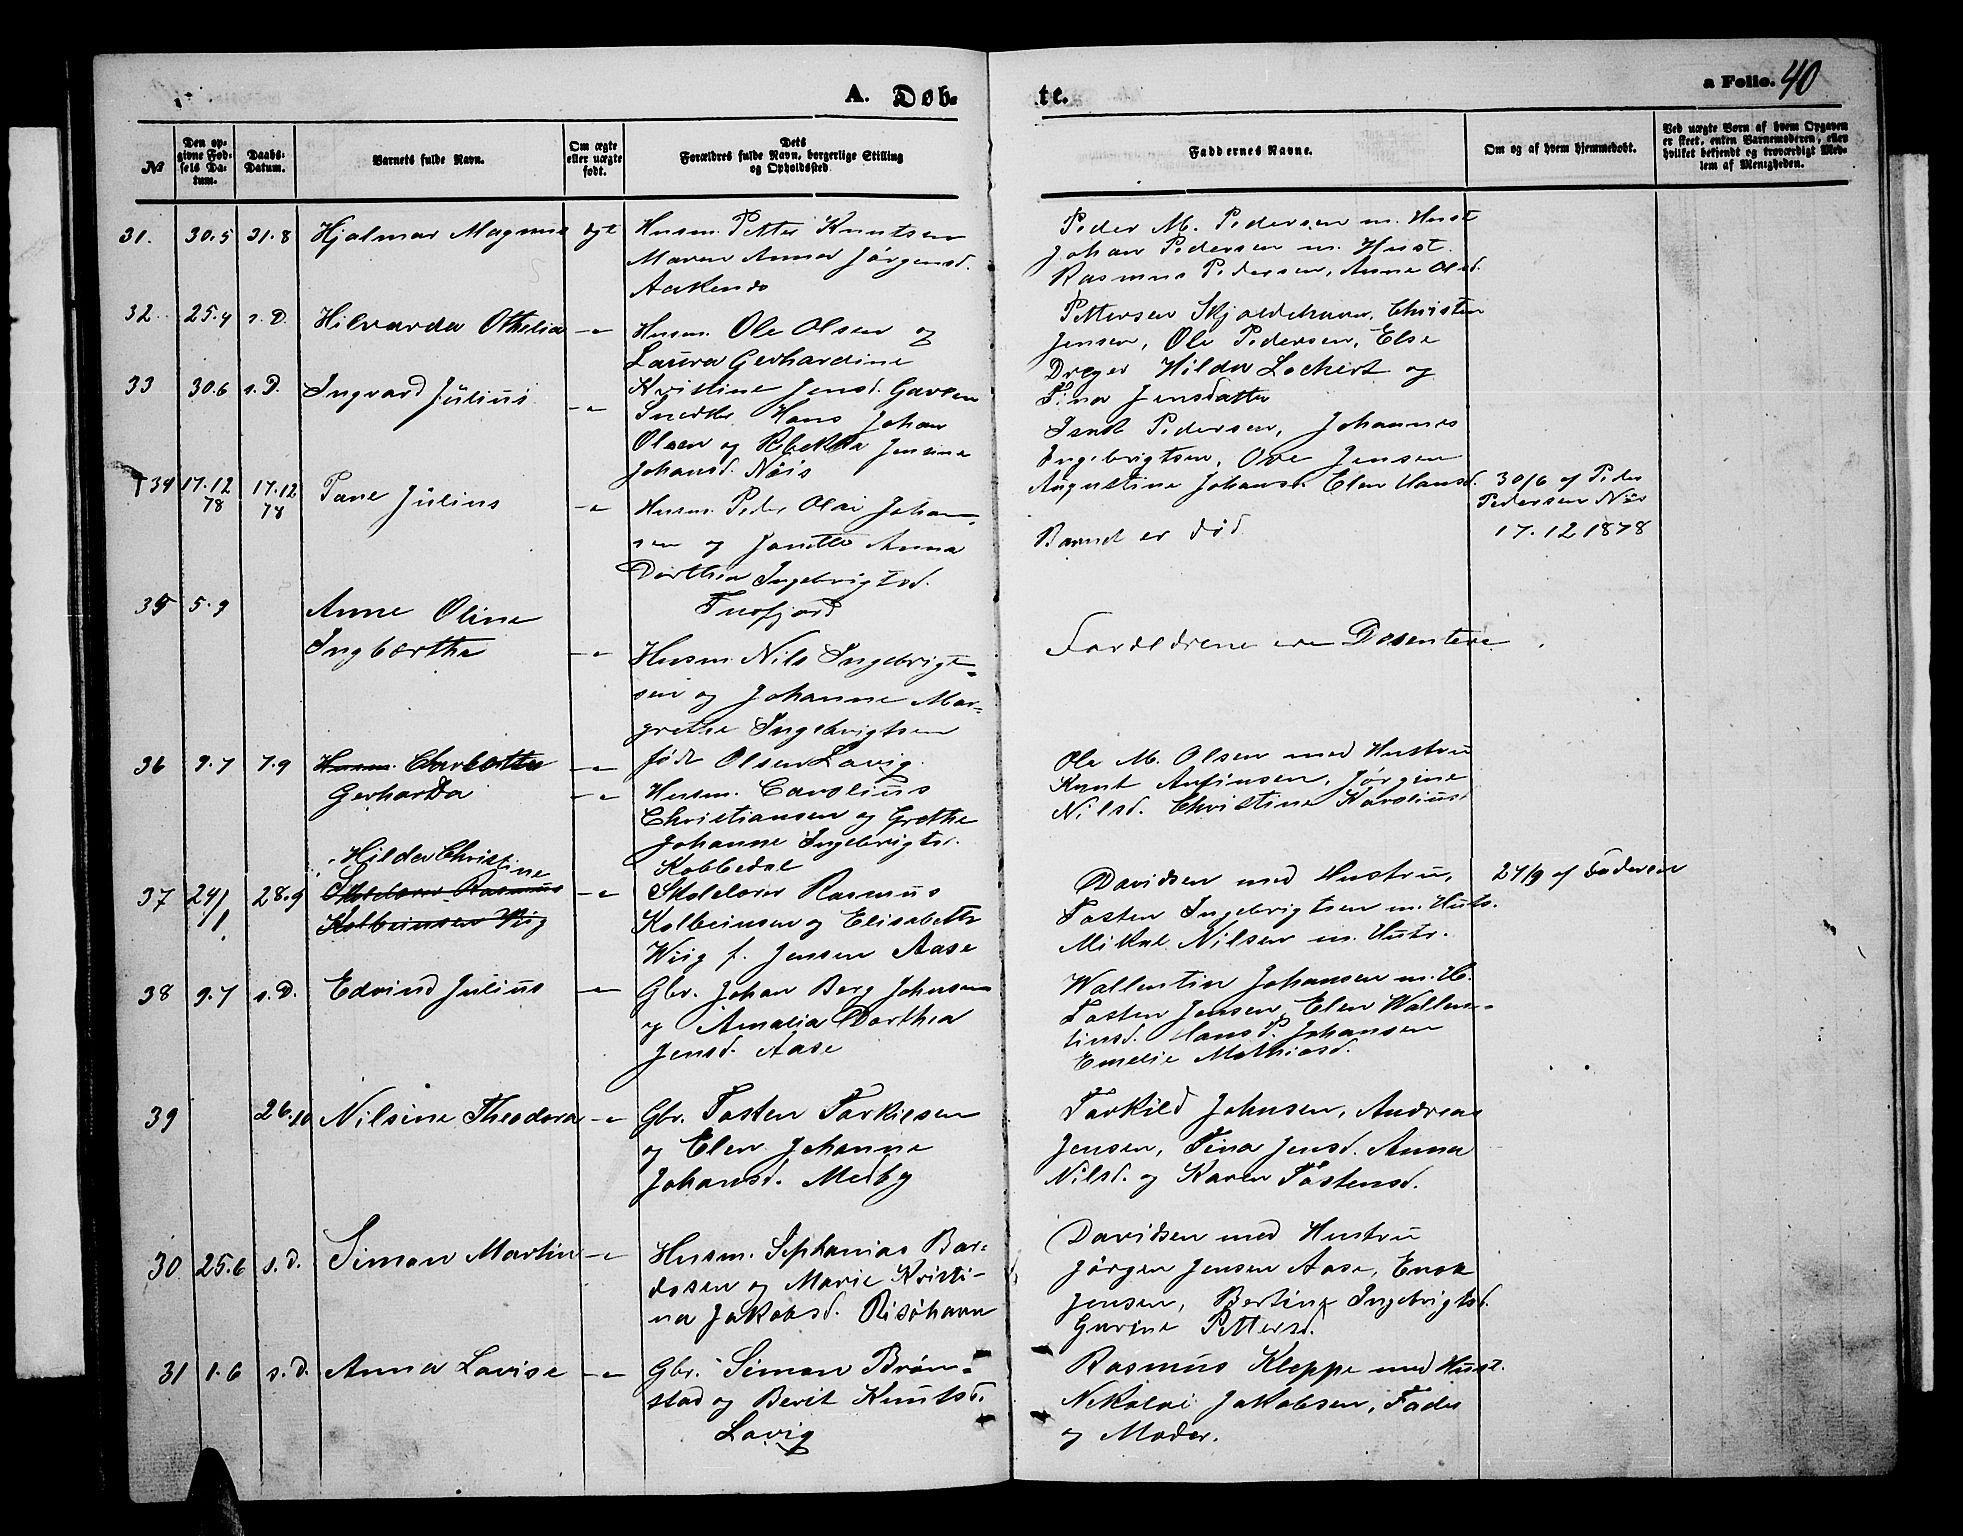 A. Døb-
te.
a Folio. 40
No
Den op-
givne Fød-
sels Da-
tum.
Daabs-
Datum.
Barnets fulde Navn.
Om ægte
eller uægte
født.
Dets
Forældres fulde Navn, borgerlige Stilling
og Opholdssted
Faddernes Navne.
Om og af hvem hjemmedøbt.
Ved uægte Børn af hvem Opgaven
er skeet, enten Barnemoderen, eller
hvilket bekjendt og troværdigt Med-
lem af Menigheden.
31. 30.5 31.8 Hjalmar Magnus ægt
Husm. Petter Knutsen
Maren Anna Jørgensd.
Peder M. Pedersen m. Hust
Johan Pedersen m. Hust.
Rasmus Pedersen, Anne Olsd.
32 25.4 s.D. Hilvarda Othelia -"-
Husm. Ole Olsen og
Laura Gerhardine
Kristine Jensd. Gavlen
Pettersen Skjoldehavn, Christen
Jensen, Ole Pedersen, Else
Dreyer Hilda Lockert og
Tina Jensdatter
33 30.6 s.D. Ingvard Julius -"-
Snedker Hans Johan
Olsen og Rebekka Jensine
Johansd. Nøis
Isak Pedersen, Johannes
Engebrigtsen, Ove Jensen
Augustine Johansd. Elen Hansd.
30/6 af Peder
Pedersen Nøis
†34 17.12 78 17.12 78 Tane Julius -"-
Husm. Peder Olai Johan-
sen og Janette Anna
Dorthea Ingebrigtsd.
Tusfjord
Barnet er død
17.12 1878
35 5.9 Anne Oline
Ingbærthe -"-
Husm. Nils Ingebrigt-
sen og Johanne Mar-
grethe Ingebrigtsen
født Olsen Lavig
Forældrene ere Desentere
36 9.7 7.9 Husm. Charlotte -"-
Gerharda -"-
Husm. Carolius
Christiansen og Grethe
Johanne Ingebrigts.
Kobbedal
Ole M. Olsen med Hustru
Knut Anfinsen, Jørgine
Nilsd. Christine Karoliusd
Hilda Christine
37 24/1 28.9 Skolelærer Rasmus -"-
Kolbeinsen Wiig
Skolelærer Rasmus
Kolbeinsen og Elisabeth
Wiig f. Jensen Aase
Davidsen med Hustru,
Tosten Ingebrigtsen m. Huts.
Mikal Nilsen m. Hutr.
24/9 af Faderen
38 9.7 s.D. Edvind Julius -"-
Gbr. Johan Berg Johnsen
og Amalia Dorthea
Jensd. Aase
Wallentin Johansen m. H.
Tosten Jensen, Elen Wallen-
tinsd. Hans P. Johansen
Emelie Mathiasd.
39 26.10 Nilsine Theodora -"-
Gbr. Tosten Torkilsen
og Elen Johanne
Johansd. Medby
Torkild Johnsen, Andreas
Jensen, Tina Jensd. Anna
Nilsd. og Karen Tostensd.
30 25.6 s.d. Simon Martin -"-
Husm. Sephanias Bar-
dosen og Marie Kristi-
na Jakobsd. Risøhavn
Davidsen med Hustru
Jørgen Jensen Aase, Enok
Jensen, Bertine Ingebrigtsd.
Gurine Pettersd.
31 1.6 s.d. Anna Lovise -"-
Gbr. Simon Brøn-
stad og Berit Knutsd.
Lavig
Rasmus Kleppe med Hust.
Nikolai Jakobsen, Fader
og Moder.